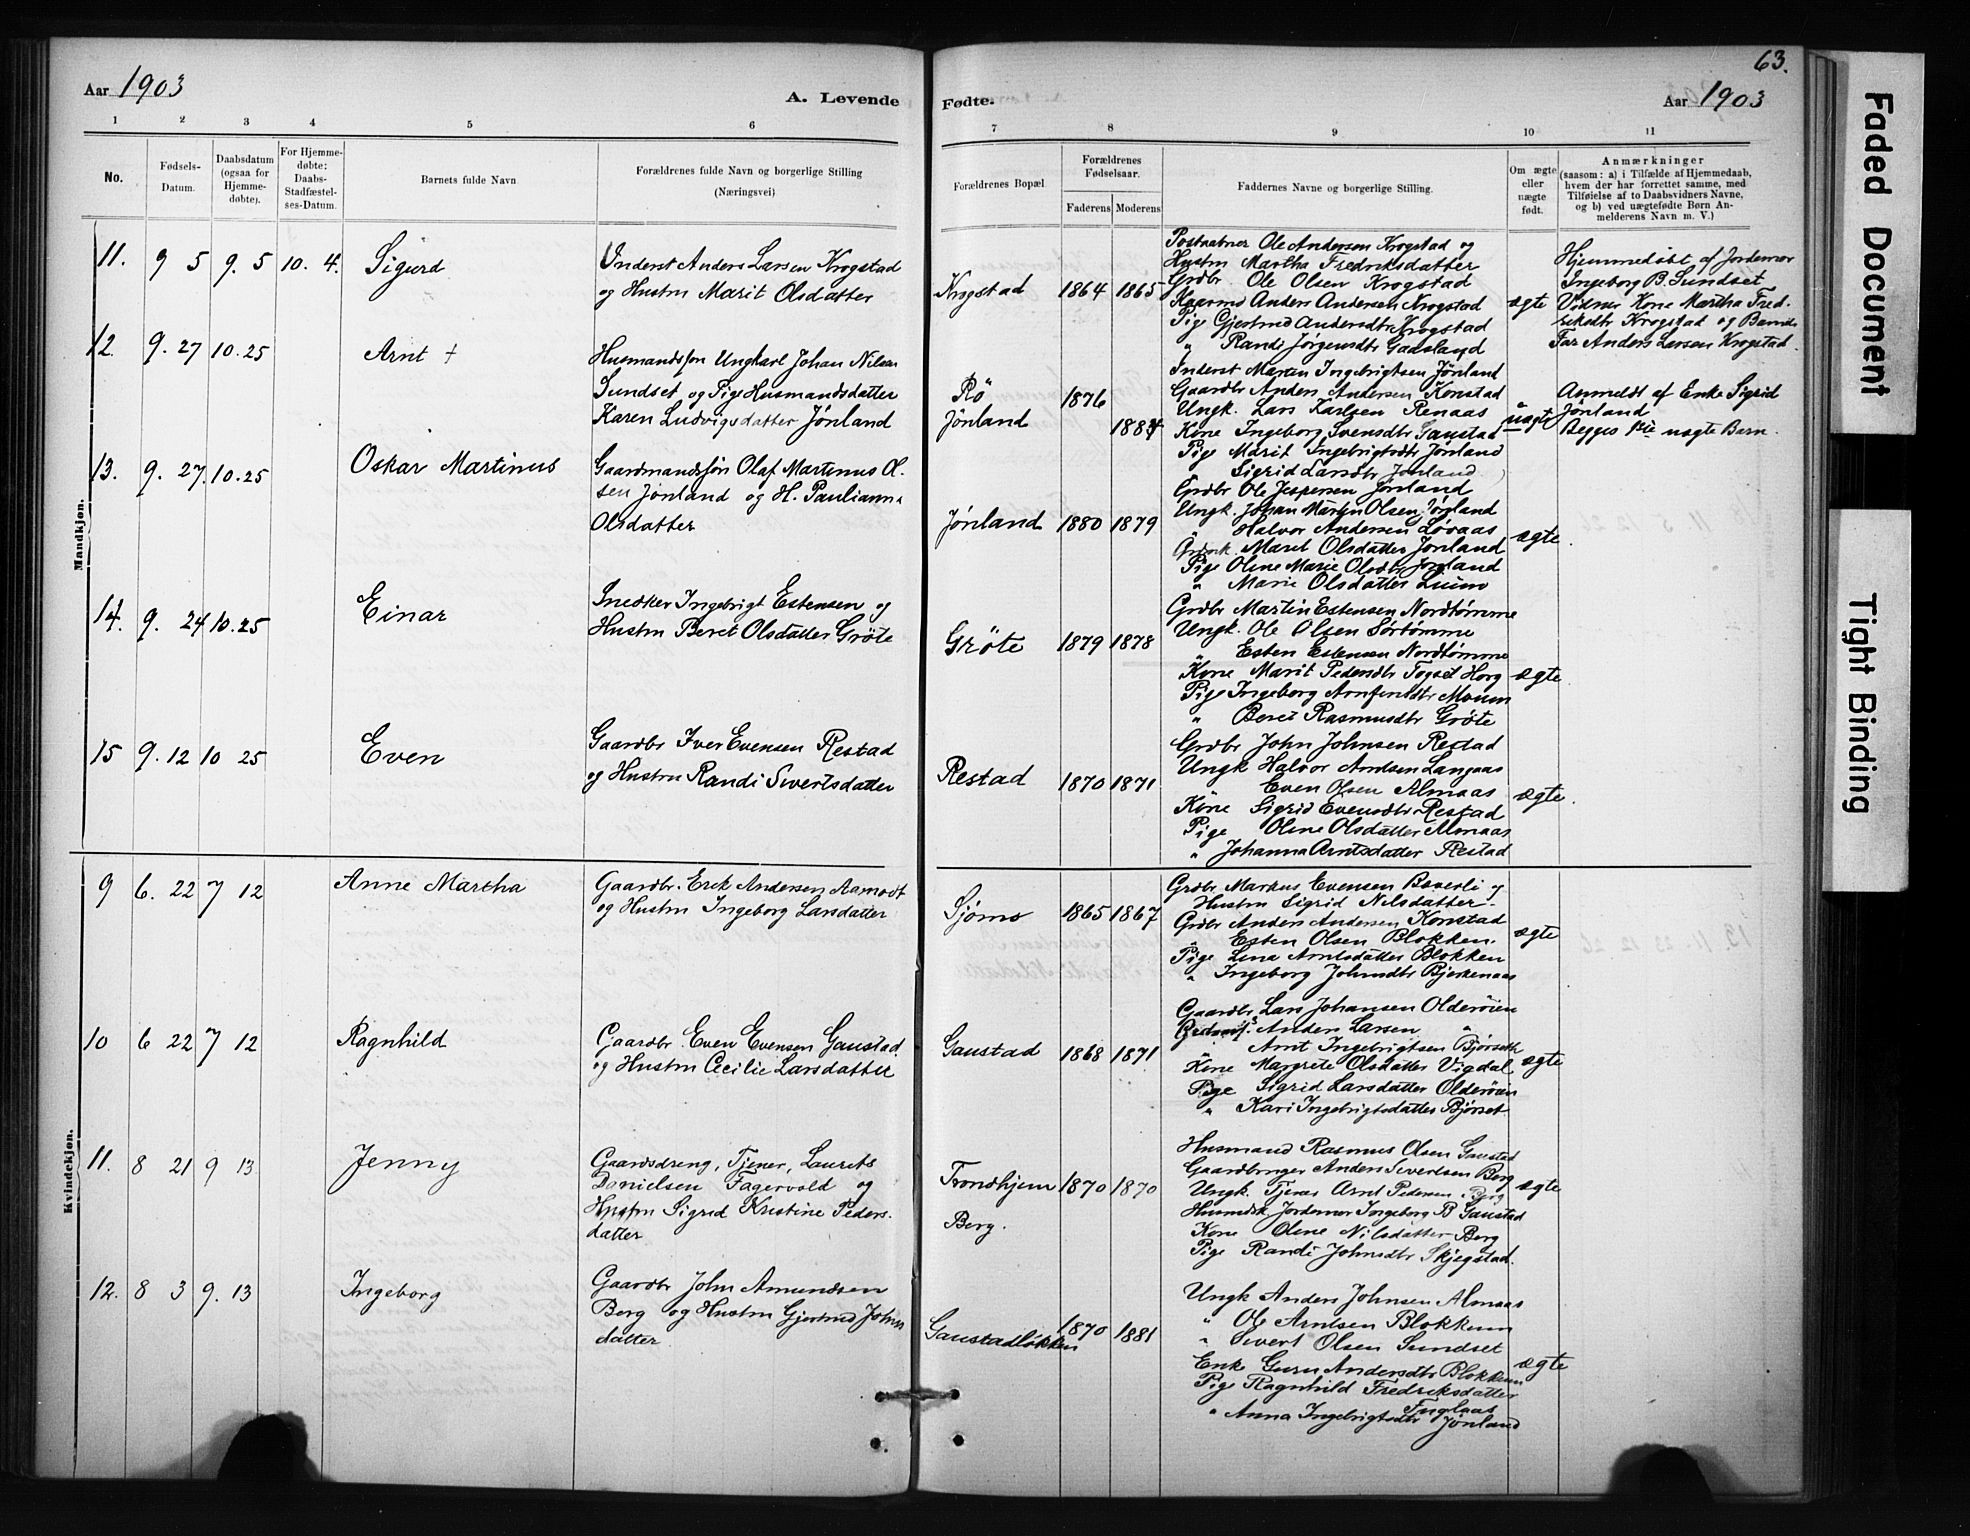 63.
Aar 1903
A. Levende
Fødte.
Aar 1903
1 2 3 4 5 6 7 8 9 10 11
No.
Fødsels-
Datum.
Daabsdatum
(ogsaa for
Hjemme-
døbte).
For Hjemme-
døbte:
Daabs-
Stadfæstel-
ses-Datum.
Barnets fulde Navn
Forældrenes fulde Navn og borgerlige Stilling
(Næringsvei)
Forældrenes Bopæl
Forældrenes
Fødselsaar.
Faderens
Moderens
Faddernes Navne og borgerlige Stilling.
Om ægte
eller
uægte
født.
Anmærkninger
(saasom: a) i Tilfælde af Hjemmedaab,
hvem der har forrettet samme, med
Tilføielse af to Daabsvidners Navne,
og b) ved uægtefødte Børn An-
melderens Navn m. V.)
Mandkjøn.
11. 9 5 9. 5 10. 4. Sigurd
Inderst Anders Larsen Krogstad
og Hustru Marit Olsdatter
Krogstad 1864 1865
Postaabner Ole Andersen Krogstad og
Hustru Martha Fredriksdatter
Grdbr Ole Olsen Krogstad
Anders Andersen Krogstad
Pige Gjertrud Andersdtr Krogstad
" Randi Jørgensdtr Gaasland
ægte
Hjemmedøbt af Jordemor
Ingeborg B. Sundset
Vidner Kone Martha Fred-
riksdtr Krogstad og Barnets
Far Anders Larsen Krogstad.
12. 9. 27 10. 25 Arnt +
Husmandssøn Ungkarl Johan Nilsen
Sundset og Pige Husmandsdatter
Karen Ludvigsdatter Jønland
Rö 1876
Jønland 1884
Inderst Martin Ingebrigtsen Jønland
Gaardbr Anders Andersen Konstad
Ungk. Lars Karlsen Renaas
Kone Ingeborg Svensdtr Gaustad
Pige Marit Ingebrigtsdtr Jønland
" Sigrid Larsdtr Jønland
uægte
Anmeldt af Enke Sigrid
Jønland
Begges 1ste uægte Barn.
13. 9. 27. 10. 25 Oskar Martinus
Gaardmandssøn Olaf Martinus Ol-
sen Jønland og H. Paulianna
Olsdatter
Jønland 1880 1879
Grdbr Ole Jespersen Jønland
Ungk. Johan Martin Olsen Jønland
" Halvor Andersen Løvaas
Marit Olsdatter Jønland
Pige Oline Marie Olsdtr Jønland
" Marie Olsdatter
ægte.
14. 9. 24 10. 25 Einar
Snedker Ingebrigt Estensen og
Hustru Beret Olsdatter Gröte
Gröte 1879 1878
Grdbr Martin Estensen Nordtømme
Ungk. Ole Olsen Sørtømme
" Esten Estensen Nordtømme
Kone Marit Pedersdtr Togset Horg
Pige Ingeborg Arnfinsdtr Moum
" Beret Rasmusdtr Grøte
ægte
15 9. 12 10 25 Even
Gaardbr Iver Evensen Restad
og Hustru Randi Sivertsdatter
Restad 1870 1871
Grdbr John Johnsen Restad
Ungk Halvor Arntsen Langaas
" Even Olsen Almaas
Kone Sigrid Evensdtr Restad
Pige Oline Olsdatter Almaas
" Johanna Arntsdatter Restad
ægte.
Kvindekjøn.
9 6. 22 7 12 Anne Martha
Gaardbr. Erik Andersen Aamodt
og Hustru Ingeborg Larsdatter
Sjømo 1865 1867
Grdbr Markus Evensen Baverli og
Hustru Sigrid Nilsdatter
Grdbr Anders Andersen Konstad
" Esten Olsen Blokken.
Pige Lina Arntsdatter Blokken
" Ingeborg Johnsdtr Bjerkenaas
ægte
10 6 22 7 12 Ragnhild
Gaardbr. Even Evensen Gaustad
og Hustru Cecilie Larsdatter
Gaustad 1868 1871
Gaardbr Lars Johansen Olderøien
Anders Larsen "
" Arnt Ingebrigtsen Bjørseth
Kone Margrete Olsdatter Vigdal
Pige Sigrid Larsdatter Olderøien
" Kari Ingebrigtsdatter Bjørset
ægte
11. 8 21 9 13 Jenny
Gaardsdreng, Tjener, Laurits
Danielsen Fagervold og
Hustru Sigrid Kristine Peders-
datter
Trondhjem 1870 1870
Berg.
Husmand Rasmus Olsen Gaustad
Gaardbruger Anders Sivertsen Berg
Ungk. Tjener Arnt Pedersen Berg
Husmdsk. Jordemor Ingeborg B Gaustad
Kone Oline Nilsdatter Berg
Pige Randi Johnsdtr Skjegstad.
ægte
12. 8 3 9. 13 Ingeborg
Gaardbr John Amundsen
Berg og Hustru Gjertrud Johns
datter
Gaustadløkken 1870 1881
Ungk Anders Johnsen Almaas
" Ole Arntsen Blokkum
" Sivert Olsen Sundset
Enke Guru Andersdtr Blokkum
Pige Ragnhild Fredriksdatter
Fuglaas
" Anna Ingebrigtsdtr Jønland
ægte
Faded Document
Tight Binding